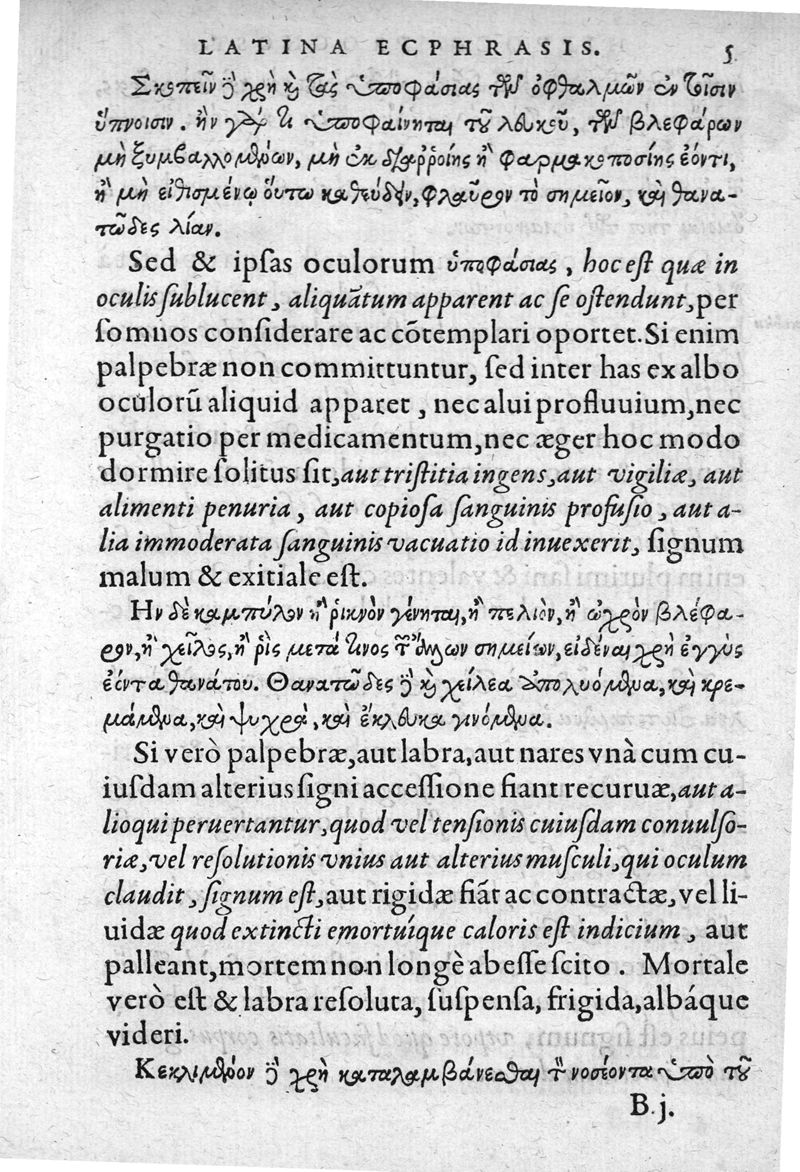 LATINA ECPHRASIS. 5
Σκοπεῖν δὲ χρὴ καὶ τὰς ὑποφάσιας τῶν ὀφθαλμῶν ἐν τοῖσιν
ὕπνοισιν. ἢν γάρ τι ὑποφαίνηται τοῦ λευκοῦ, τῶν βλεφάρων
μὴ ξυμβαλλομένων, μὴ ἐκ διαῤῥοίης ἢ φαρμακοποσίης ἐόντι,
ἢ μὴ εἰθισμένῳ οὕτω καθεύδειν, φλαῦρον τὸ σημεῖον, καὶ θανα-
τῶδες λίαν.
Sed & ipſas oculorum ὑποφάσιας, hoc eſt quæ in
oculis ſublucent, aliquãtum apparent ac ſe oſtendunt, per
ſomnos conſiderare ac cõtemplari oportet. Si enim
palpebræ non committuntur, ſed inter has ex albo
oculorũ aliquid apparet, nec alui profluuium, nec
purgatio per medicamentum, nec æger hoc modo
dormire ſolitus ſit, aut triſtitia ingens, aut vigiliæ, aut
alimenti penuria, aut copioſa ſanguinis profuſio, aut a-
lia immoderata ſanguinis vacuatio id inuexerit, ſignum
malum & exitiale eſt.
Ην δὲ καμπύλον ἢ ῥικνὸν γένηται, ἢ πελιὸν, ἢ ὠχρὸν βλέφα-
ρον, ἢ χεῖλος, ἢ ῥὶς μετά τινος τῶν ἄλλων σημείων, εἰδέναι χρὴ ἐγγὺς
ἐόντα θανάτου. Θανατῶδες δὲ καὶ χείλεα ἀπολυόμενα, καὶ κρε-
μάμενα, καὶ ψυχρὰ, καὶ ἔκλευκα γινόμενα.
Si verò palpebræ, aut labra, aut nares vnà cum cu-
iuſdam alterius ſigni acceſſione fiant recuruæ, aut a-
lioqui peruertantur, quod vel tenſionis cuiuſdam conuulſo-
riæ, vel reſolutionis vnius aut alterius muſculi, qui oculum
claudit, ſignum eſt, aut rigidæ fiãt ac contractæ, vel li-
uidæ quod extincti emortuíque caloris eſt indicium, aut
palleant, mortem non longè abeſſe ſcito. Mortale
verò eſt & labra reſoluta, ſuſpenſa, frigida, albáque
videri.
Κεκλιμένον δὲ χρὴ καταλαμβάνεσθαι τὸν νοσέοντα ὑπὸ τοῦ
B.j.